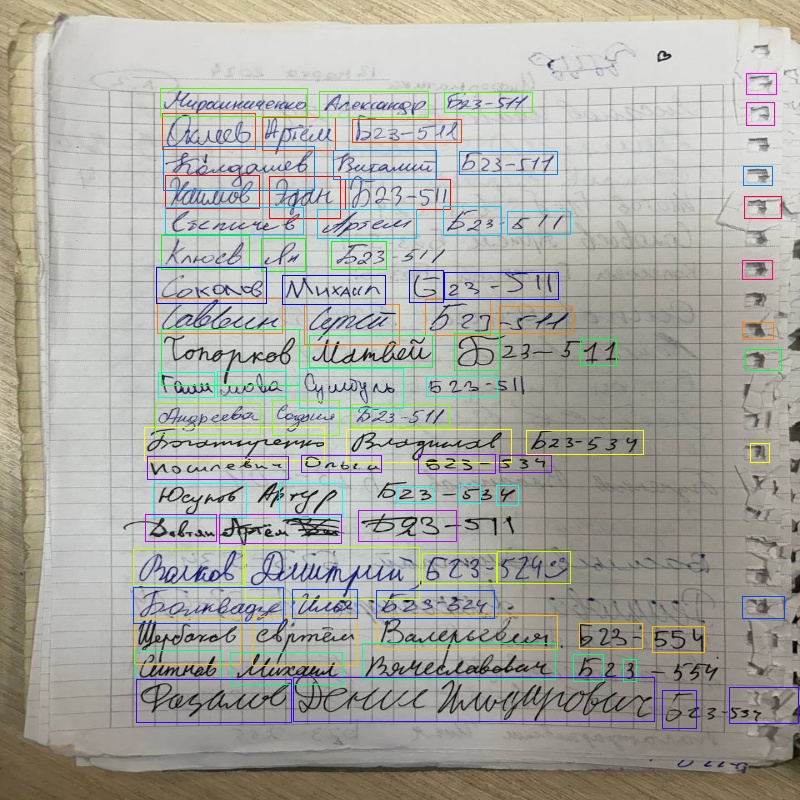 Мирошниченко Александр Б23-511
Оклеев Артём Б23-511
Колдашев Виталий Б23-511
Хаимов Эдан Б23-511
Артем Б23-511
Клюев Ян Б23-511
Соколов Михаил Б23-511
Саввин Сергей Б23-511
Топорков Матвей Б23-511
Галимова Сумбуль Б23-511
Андреева София Б23-511
Богатыренко Владислав Б23-534
Ольга Б23-534
Юсупов Артур Б23-534
Девтян Артём Б23-511
Волков Дмитрий Б23-524
Болквадзе Илья Б23-524
Щербаков Валерьевич Б23-554
Ситнев Михаил Вячеславович Б23-554
Фазалов Денис Ильдарович Б23-534